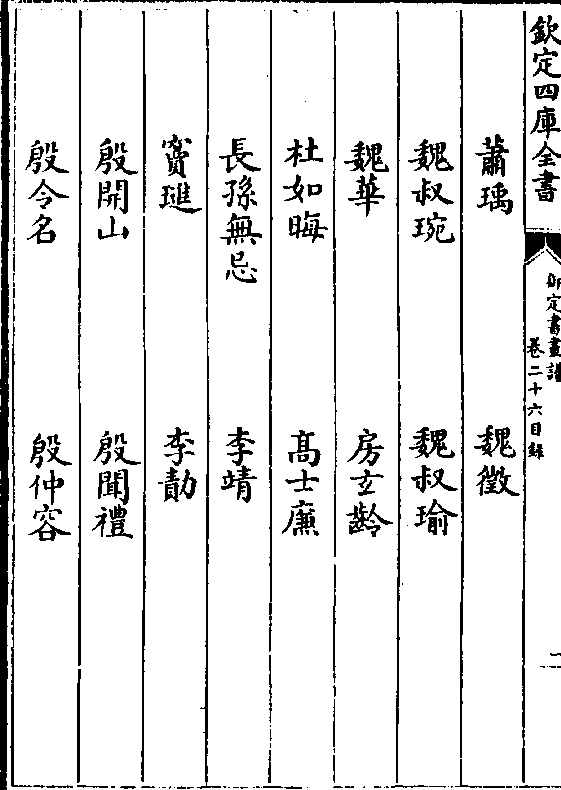 欽定四庫全書
御定書畫譜
卷二十六目錄
蕭瑀
魏徵
魏叔琬
魏叔瑜
魏華
房玄齡
杜如晦
髙士廉
長孫無忌
李靖
竇璡
李勣
殷開山
殷聞禮
殷令名
殷仲容